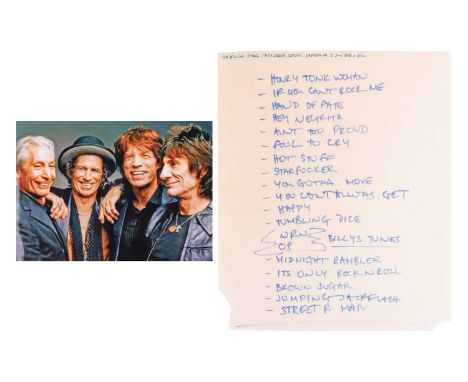 - HONKY TONK WOMAN
- IF YOU CANT ROCK ME
- HAND OF FATE
- HEY NEGRITA
- AINT TOO PROUD
- FOOL TO CRY
- HOT STUFF
- STARFUCKER
- YOU GOTTA MOVE
- YOU CANT ALWAS GET
- HAPPY
- TUMBLING DICE
{ N.R.N } BILLYS TUNES
OS
- MIDNIGHT RAMBLER
- ITS ONLY ROCK N ROLL
- BROWN SUGAR
- JUMPING JACK FLASH
- STREET F MAN